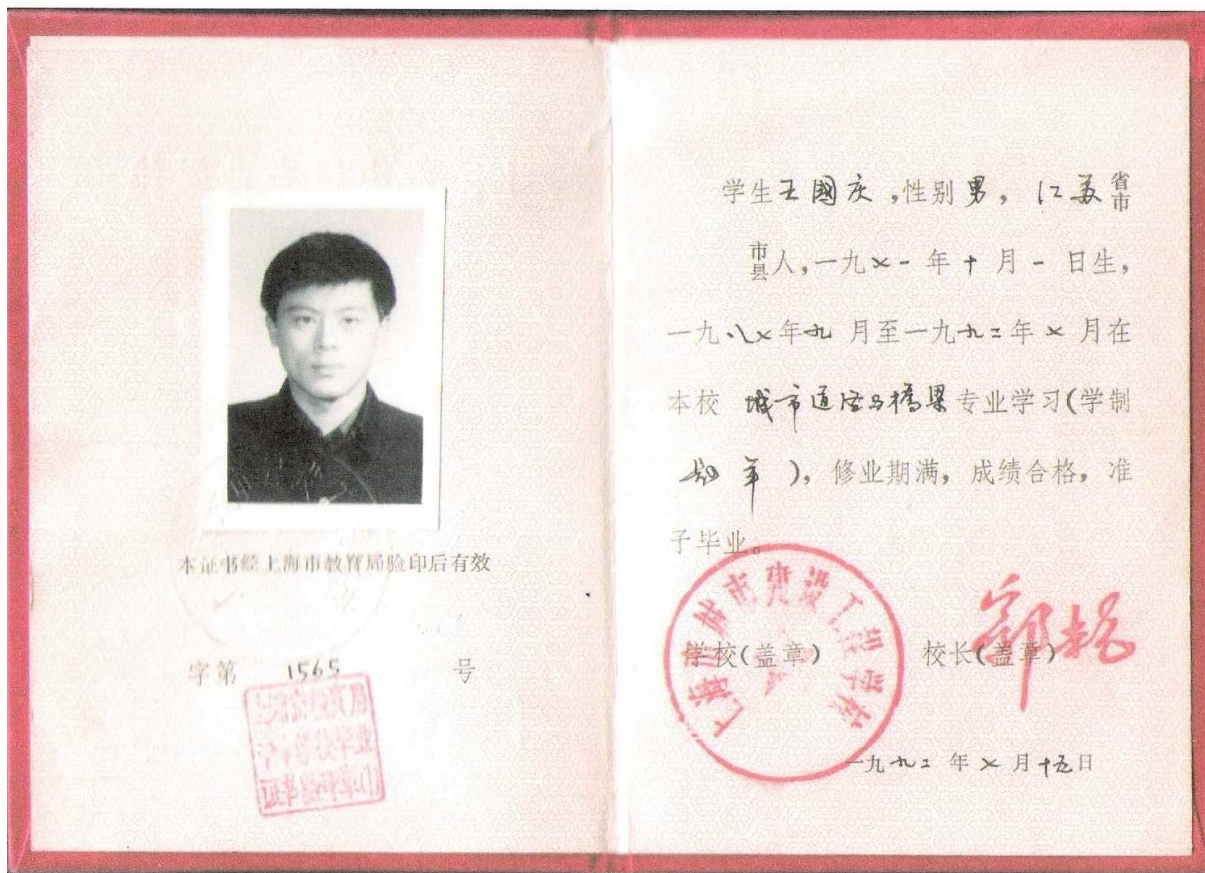 本证书经上海市教育局验印后有效
字第 1565 号
学生王國庆,性别男,江苏省市
市县人,一九七一年十月一日生,
一九八七年九月至一九九二年七月在
本校 城市道路与橋梁专业学习(学制
年),修业期满,成绩合格,准
予毕业。
上海市城市建设工程学校
学校(盖章) 校长(盖章)
一九九二年七月十五日